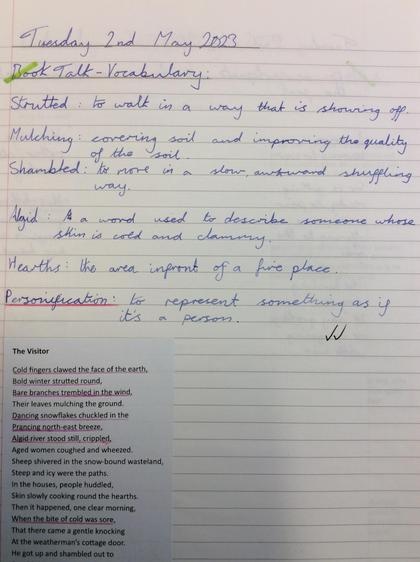 Tuesday 2nd May 2023
Book Talk - Vocabulary:
Strutted: to walk in a way that is showing off.
Mulching: covering soil and improving the quality
of the soil.
Shambled: to move in a slow, awkward shuffling
way.
Algid: a word used to describe someone whose
skin is cold and clammy.
Hearths: the area infront of a fire place.
Personification: to represent something as if
it's a person.
The Visitor
Cold fingers clawed the face of the earth,
Bold winter strutted round,
Bare branches trembled in the wind,
Their leaves mulching the ground.
Dancing snowflakes chuckled in the
Prancing north-east breeze,
Algid river stood still, crippled,
Aged women coughed and wheezed.
Sheep shivered in the snow-bound wasteland,
Steep and icy were the paths.
In the houses, people huddled,
Skin slowly cooking round the hearths.
Then it happened, one clear morning,
When the bite of cold was sore,
That there came a gentle knocking
At the weatherman's cottage door.
He got up and shambled out to